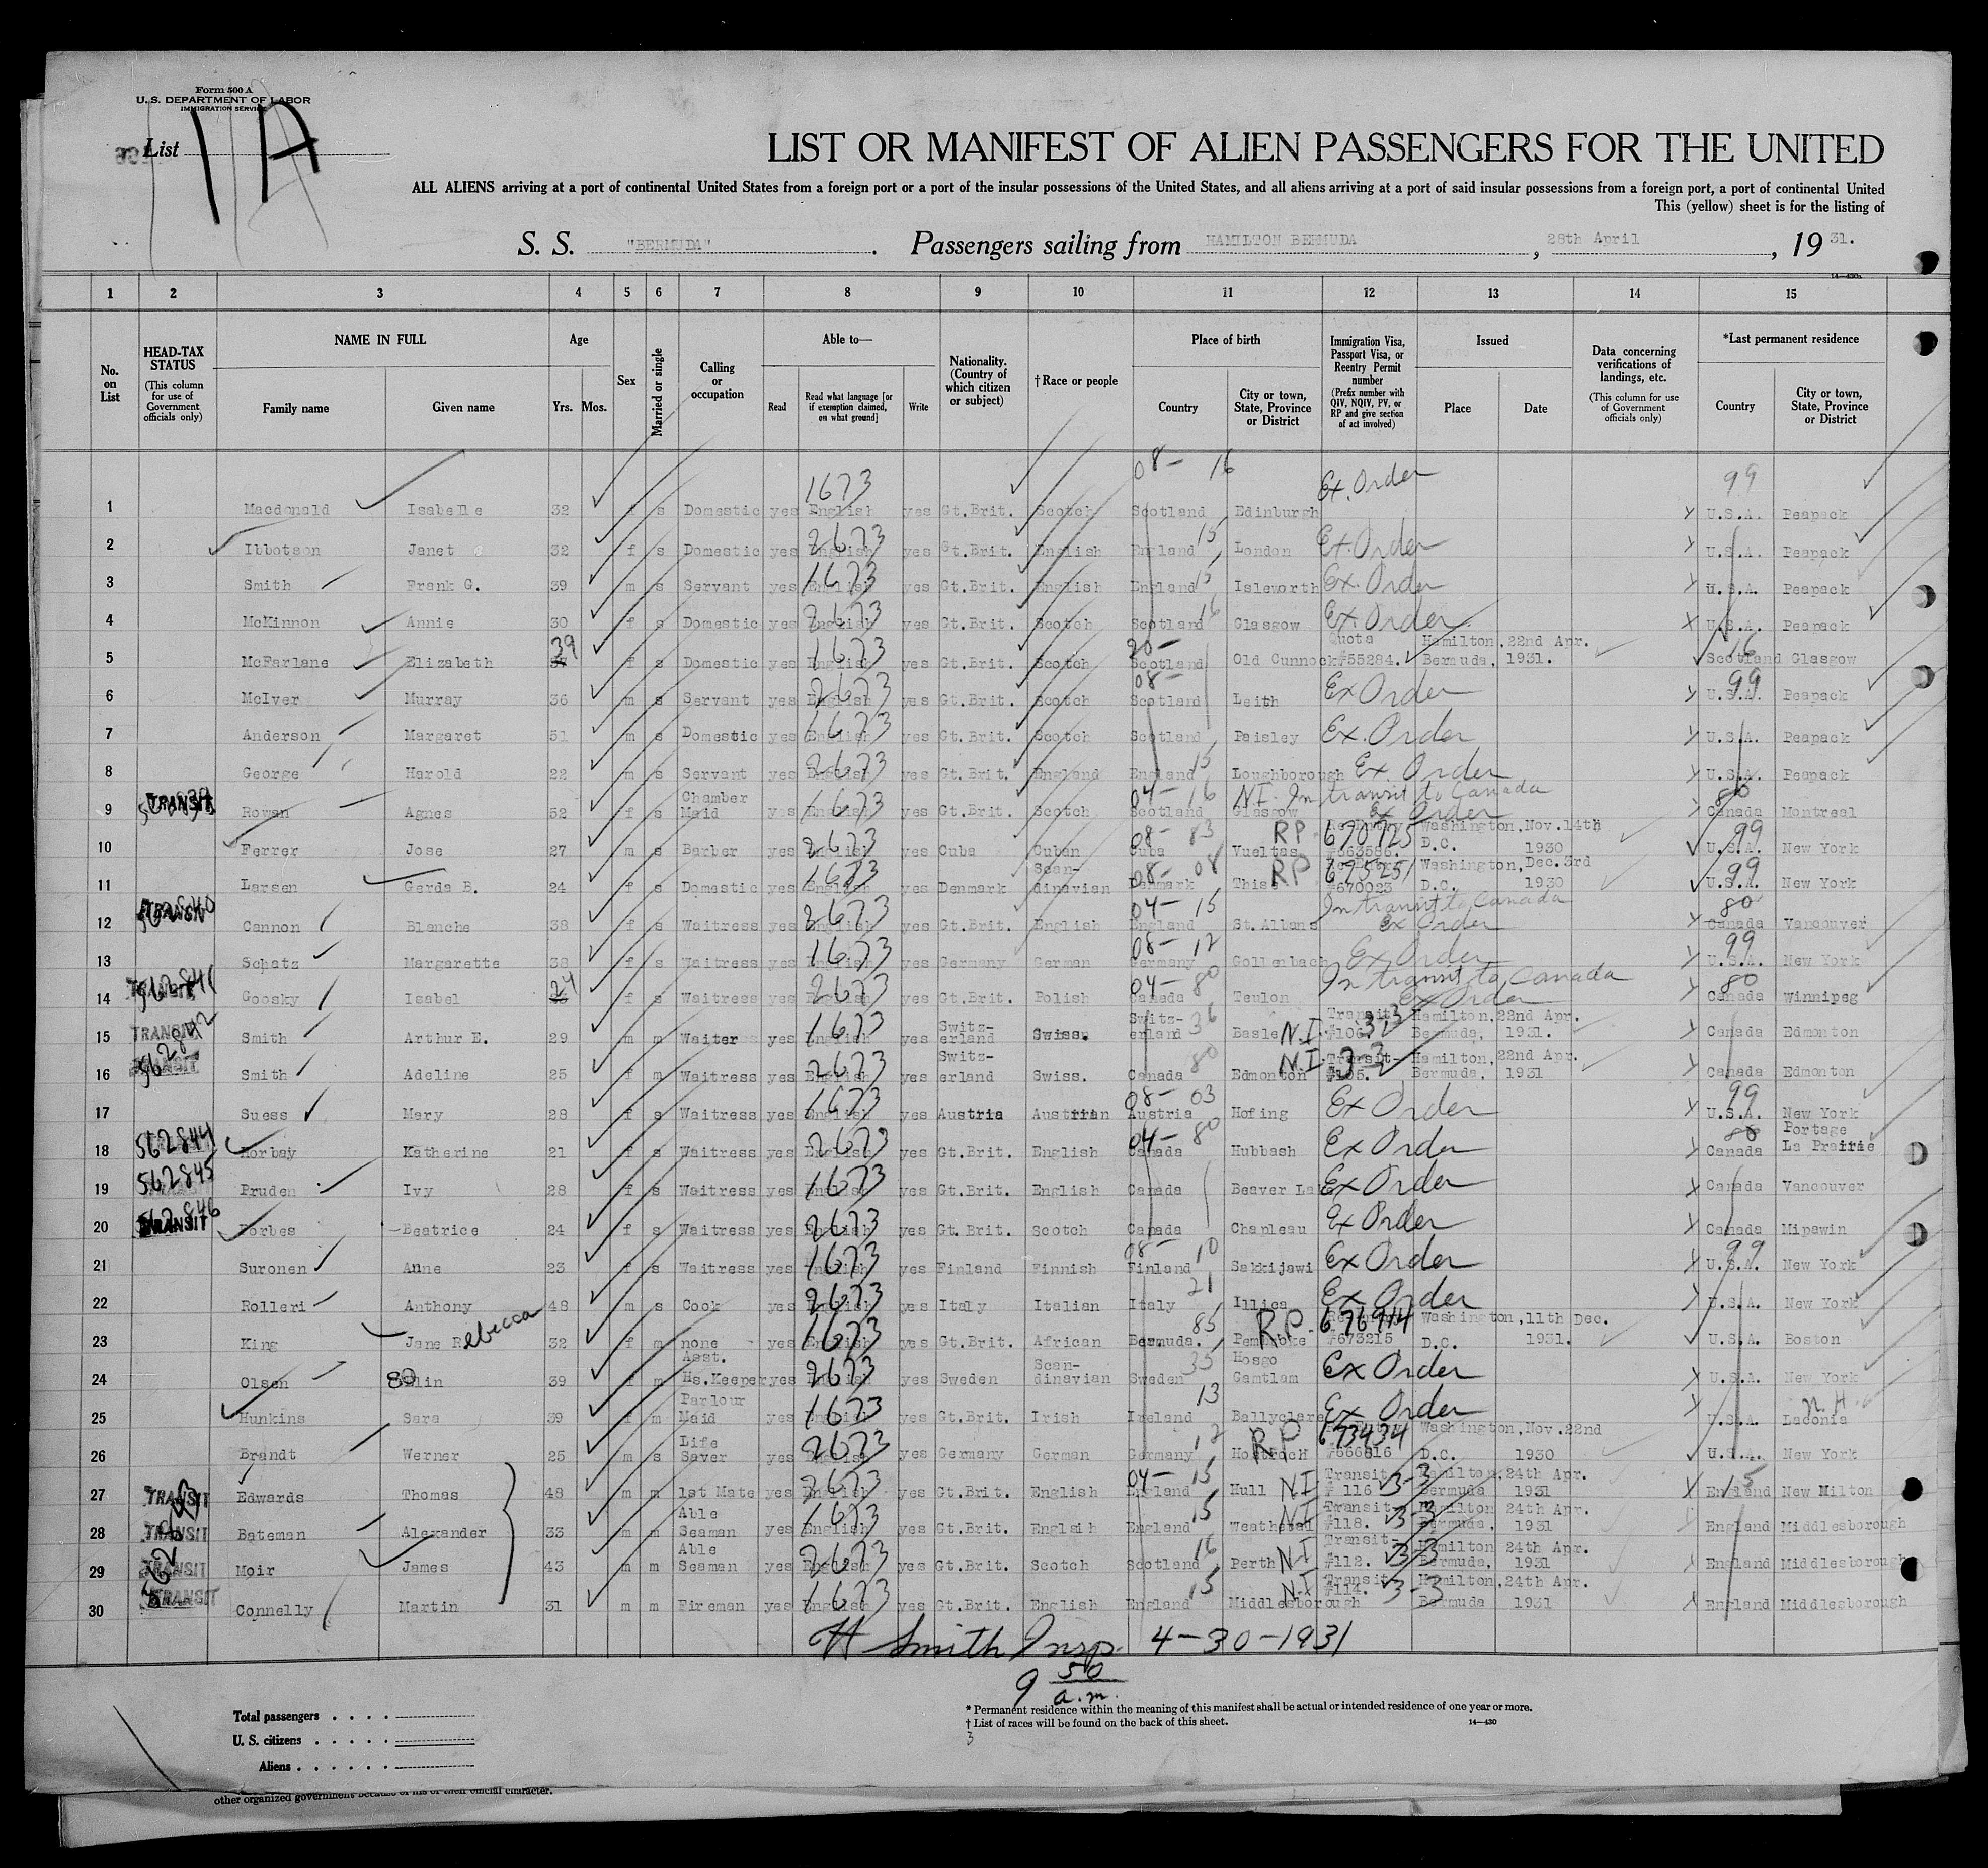 Form 500 A
U. S. DEPARTMENT OF LABOR
IMMIGRATION SERVICE
List 11A
LIST OR MANIFEST OF ALIEN PASSENGERS FOR THE UNITED
ALL ALIENS arriving at a port of continental United States from a foreign port or a port of the insular possessions of the United States, and all aliens arriving at a port of said insular possessions from a foreign port, a port of continental United
This (yellow) sheet is for the listing of
S. S. "BERMUDA". Passengers sailing from HAMILTON BERMUDA, 28th April, 19 31.
14-430a
1 2 3 4 5 6 7 8 9 10 11 12 13 14 15
No. on List
HEAD-TAX STATUS (This column for use of Government officials only)
NAME IN FULL Family name Given name
Age Yrs. Mos.
Sex
Married or single
Calling or occupation
Able to— Read Read what language [or if exemption claimed, on what ground] Write
Nationality. (Country of which citizen or subject)
† Race or people
Place of birth Country City or town, State, Province or District
Immigration Visa, Passport Visa, or Reentry Permit number (Prefix number with QIV, NQIV, PV, or RP and give section of act involved)
Issued Place Date
Data concerning verifications of landings, etc. (This column for use of Government officials only)
*Last permanent residence Country City or town, State, Province or District
1 Macdonald Isabelle 32 f s Domestic yes English 1673 yes Gt.Brit. Scotch Scotland 08- 16 Edinburgh Ex. Order 99 U.S.A. Peapack
2 Ibbotson Janet 32 f s Domestic yes English 2673 yes Gt.Brit. English England 15 London Ex. Order U.S.A. Peapack
3 Smith Frank G. 39 m s Servant yes English 1673 yes Gt.Brit. English England 15 Isleworth Ex. Order U.S.A. Peapack
4 McKinnon Annie 30 f s Domestic yes English 2673 yes Gt.Brit. Scotch Scotland 16 Glasgow Ex. Order U.S.A. Peapack
5 McFarlane Elizabeth 39 f s Domestic yes English 1673 yes Gt.Brit. Scotch 20- Scotland Old Cunnock Quota #55284. Hamilton, Bermuda, 22nd Apr. 1931. 16 Scotland Glasgow
6 McIver Murray 36 m s Servant yes English 2673 yes Gt.Brit. Scotch 08- Scotland Leith Ex Order 99 U.S.A. Peapack
7 Anderson Margaret 51 m s Domestic yes English 1673 yes Gt.Brit. Scotch Scotland Paisley Ex. Order U.S.A. Peapack
8 George Harold 22 m s Servant yes English 2673 yes Gt.Brit. England England 15 Loughborough Ex. Order U.S.A. Peapack
9 TRANSIT Rowan Agnes 52 f s Chamber Maid yes English 1673 yes Gt.Brit. Scotch 04- 16 Scotland Glasgow N.I. In transit to Canada Ex Order 80 Canada Montreal
10 Ferrer Jose 27 m s Barber yes English 2673 yes Cuba Cuban 08- 83 Cuba Vueltas RP 670725 #663586. Washington, D.C. Nov. 14th 1930 99 U.S.A. New York
11 Larsen Gerda B. 24 f s Domestic yes English 1673 yes Denmark Scan-dinavian 08- 08 Denmark This RP 675251 #670023 Washington, D.C. Dec. 3rd 1930 99 U.S.A. New York
12 TRANSIT 562840 Cannon Blanche 38 f s Waitress yes English 2673 yes Gt.Brit. English 04- 15 England St.Albans In transit to Canada Ex Order 80 Canada Vancouver
13 Schatz Margarette 38 f s Waitress yes English 1673 yes Germany German 08- 12 Germany Gollenbach Ex Order 99 U.S.A. New York
14 TRANSIT 562841 Goosky Isabel 24 f s Waitress yes English 2673 yes Gt.Brit. Polish 04- 80 Canada Teulon In transit to Canada Ex Order 80 Canada Winnipeg
15 TRANSIT Smith Arthur E. 29 m m Waiter yes English 1673 yes Switz-erland Swiss. Switz-erland 36 Basle N.I. Transit #106. 3-3 Hamilton, Bermuda, 22nd Apr. 1931. Canada Edmonton
16 TRANSIT Smith Adeline 25 f m Waitress yes English 2673 yes Switz-erland Swiss. Canada 80 Edmonton N.I. Transit- #105. 3-3 Hamilton, Bermuda, 22nd Apr. 1931 Canada Edmonton
17 Suess Mary 28 f s Waitress yes English 1673 yes Austria Austrian 08- 03 Austria Hofing Ex Order 99 U.S.A. New York
18 562844 Korbay Katherine 21 f s Waitress yes English 2673 yes Gt.Brit. English 04- 80 Canada Hubbash Ex Order 80 Canada Portage La Prairie
19 562845 Pruden Ivy 28 f s Waitress yes English 1673 yes Gt.Brit. English Canada Beaver Ex Order Canada Vancouver
20 TRANSIT 562846 Forbes Beatrice 24 f s Waitress yes English 2673 yes Gt.Brit. Scotch Canada Chapleau Ex Order Canada Mipawin
21 Suronen Anne 23 f s Waitress yes English 1673 yes Finland Finnish 08- 10 Finland Sakkijawi Ex Order 99 U.S.A. New York
22 Rolleri Anthony 48 m s Cook yes English 2673 yes Italy Italian 21 Italy Illica Ex Order U.S.A. New York
23 King Jane Rebecca 32 f m none yes English 1673 yes Gt.Brit. African 85 Bermuda. Pembroke RP. 676914 #673215 Washington, D.C. 11th Dec. 1931. U.S.A. Boston
24 Olsen Elin 39 f m Asst. Hs.Keeper yes English 2673 yes Sweden Scan-dinavian 35 Sweden Hosgo Gamtlam Ex Order U.S.A. New York
25 Hunkins Sara 39 f m Parlour Maid yes English 1673 yes Gt.Brit. Irish 13 Ireland Ballyclare Ex Order U.S.A. Laconia N.H.
26 Brandt Werner 25 m s Life Saver yes English 2673 yes Germany German 12 Germany RP 673434 #666816 Washington, D.C. Nov. 22nd 1930 U.S.A. New York
27 TRANSIT Edwards Thomas 48 m m 1st Mate yes English 2673 yes Gt.Brit. English 04- 15 England Hull NI Transit # 116 3-3 Hamilton, Bermuda 24th Apr. 1931 15 England New Milton
28 TRANSIT Bateman Alexander 33 m m Able Seaman yes English 1673 yes Gt.Brit. Englsih 15 England NI Transit- #118. 3-3 Hamilton Bermuda, 24th Apr. 1931 England Middlesborough
29 TRANSIT Moir James 43 m m Able Seaman yes English 2673 yes Gt.Brit. Scotch 16 Scotland Perth NI Transit- #112. 3-3 Hamilton Bermuda, 24th Apr. 1931 England Middlesborough
30 TRANSIT Connelly Martin 31 m m Fireman yes English 1673 yes Gt.Brit. English 15 England Middlesborough N.I Transit #114. 3-3 Hamilton, Bermuda 24th Apr. 1931 England Middlesborough
H Smith Insp. 4-30-1931
9 50 a.m.
Total passengers . . . .
U. S. citizens . . . . .
Aliens . . . . . .
* Permanent residence within the meaning of this manifest shall be actual or intended residence of one year or more.
† List of races will be found on the back of this sheet.
14-430
3
other organized government because of his or their official character.